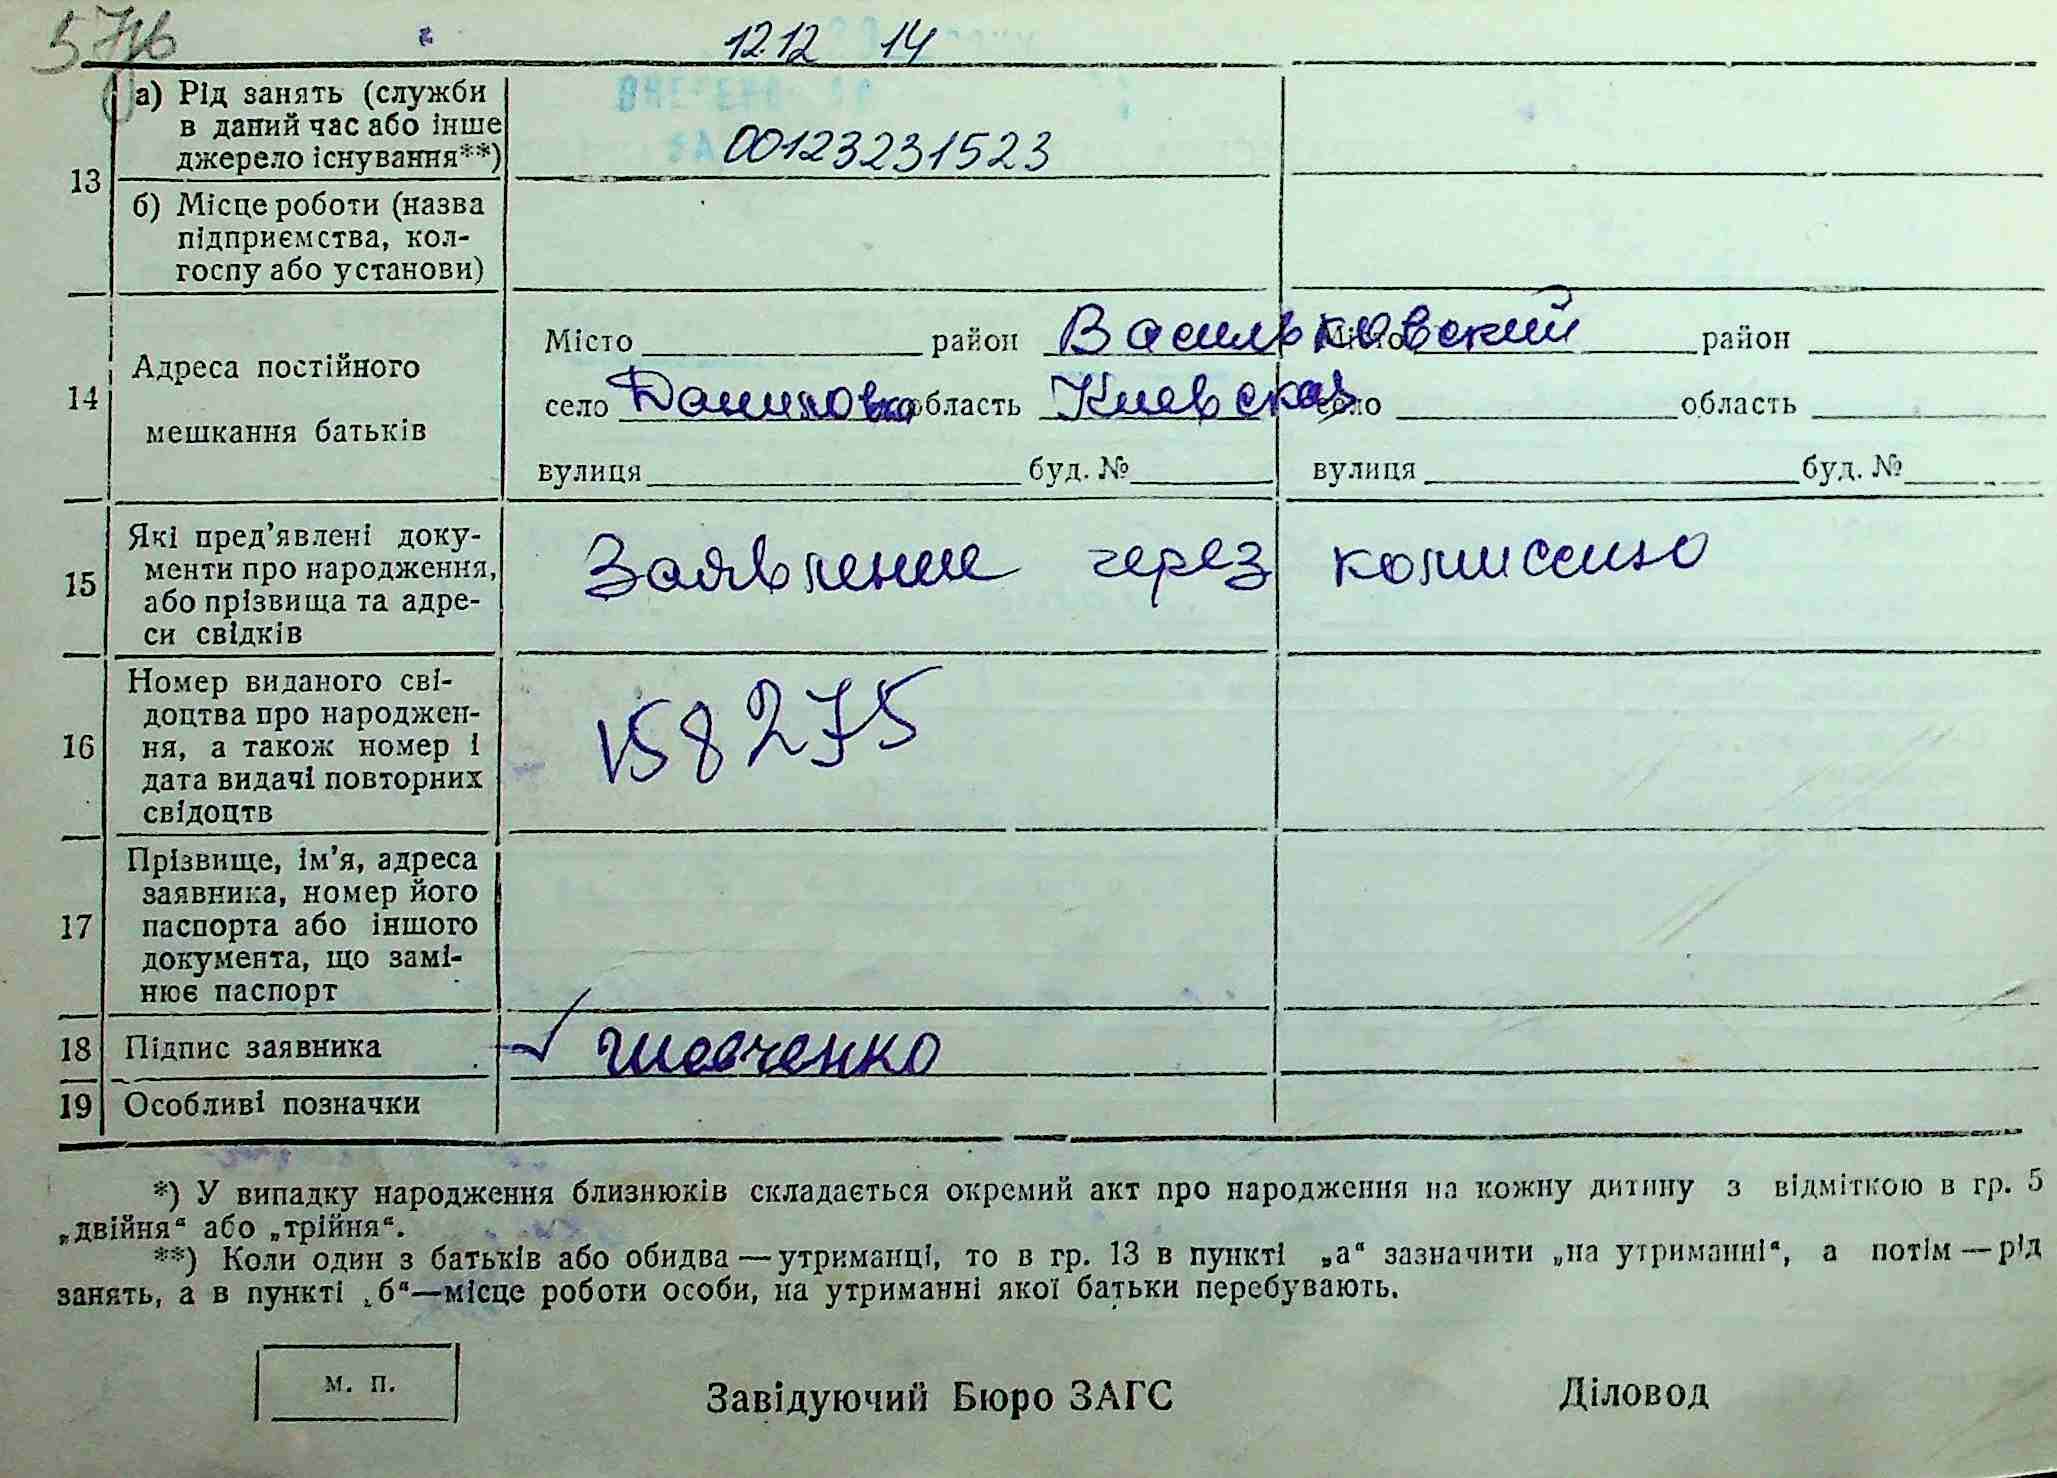 12.12 14
13
а) Рід занять (служби
в даний час або інше
джерело існування**)
00123231523
б) Місце роботи (назва
підприємства, кол-
госпу або установи)
14
Адреса постійного
мешкання батьків
Місто район Васильковский Місто район
село Даниловка область Киевская село область
вулиця буд. № вулиця буд. №
15
Які пред’явлені доку-
менти про народження,
або прізвища та адре-
си свідків
Заявление через комиссию
16
Номер виданого сві-
доцтва про народжен-
ня, а також номер і
дата видачі повторних
свідоцтв
158275
17
Прізвище, ім’я, адреса
заявника, номер його
паспорта або іншого
документа, що замі-
нює паспорт
18 Підпис заявника Шевченко
19 Особливі позначки
*) У випадку народження близнюків складається окремий акт про народження на кожну дитину з відміткою в гр. 5
„двійня“ або „трійня“.
**) Коли один з батьків або обидва — утриманці, то в гр. 13 в пункті „а“ зазначити „на утриманні“, а потім — рід
занять, а в пункті „б“—місце роботи особи, на утриманні якої батьки перебувають.
м. п.
Завідуючий Бюро ЗАГС Діловод